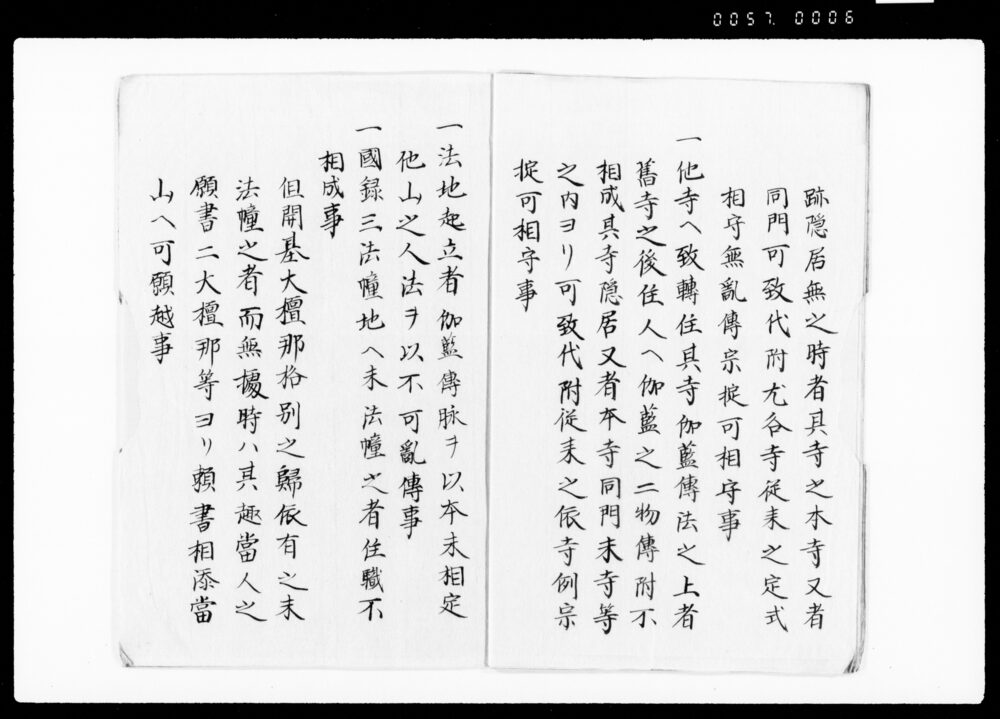 0057.0006
跡隠居無之時者其寺之本寺又者
同門可致代附尤各寺従来之定式
相守無亂傳宗掟可相守事
一他寺ヘ致轉住其寺伽藍傳法之上者
舊寺之後住人ヘ伽藍之二物傳附不
相成其寺隠居又者本寺同門末寺等
之内ヨリ可致代附従来之依寺例宗
掟可相守事
一法地起立者伽藍傳脉ヲ以本末相定
他山之人法ヲ以不可亂傳事
一國録三法幢地ヘ未法幢之者住職不
相成事
但開基大檀那格別之歸依有之未
法幢之者而無據時ハ其趣當人之
願書二大檀那等ヨリ頼書相添當
山ヘ可願越事